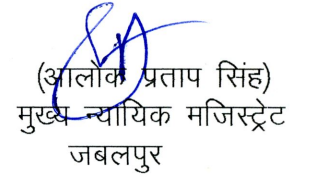 (आलोक प्रताप सिंह)
मुख्य न्यायिक मजिस्ट्रेट
जबलपुर